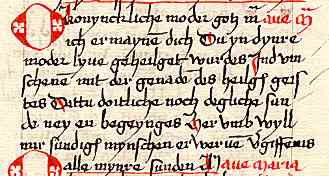 O konynckliche moder gotz m aue m
ich ermayne dich Du yn dynre
moder lyue geheilget wurdes Ind vm
schenen mit der genade des heilgs geis
tes Dattu doitliche noch degliche sun
de ney en begeynges Her vmb wyll
mir sundigs mynschen er werue vgiffenis
alle mynre sunden A aue maria